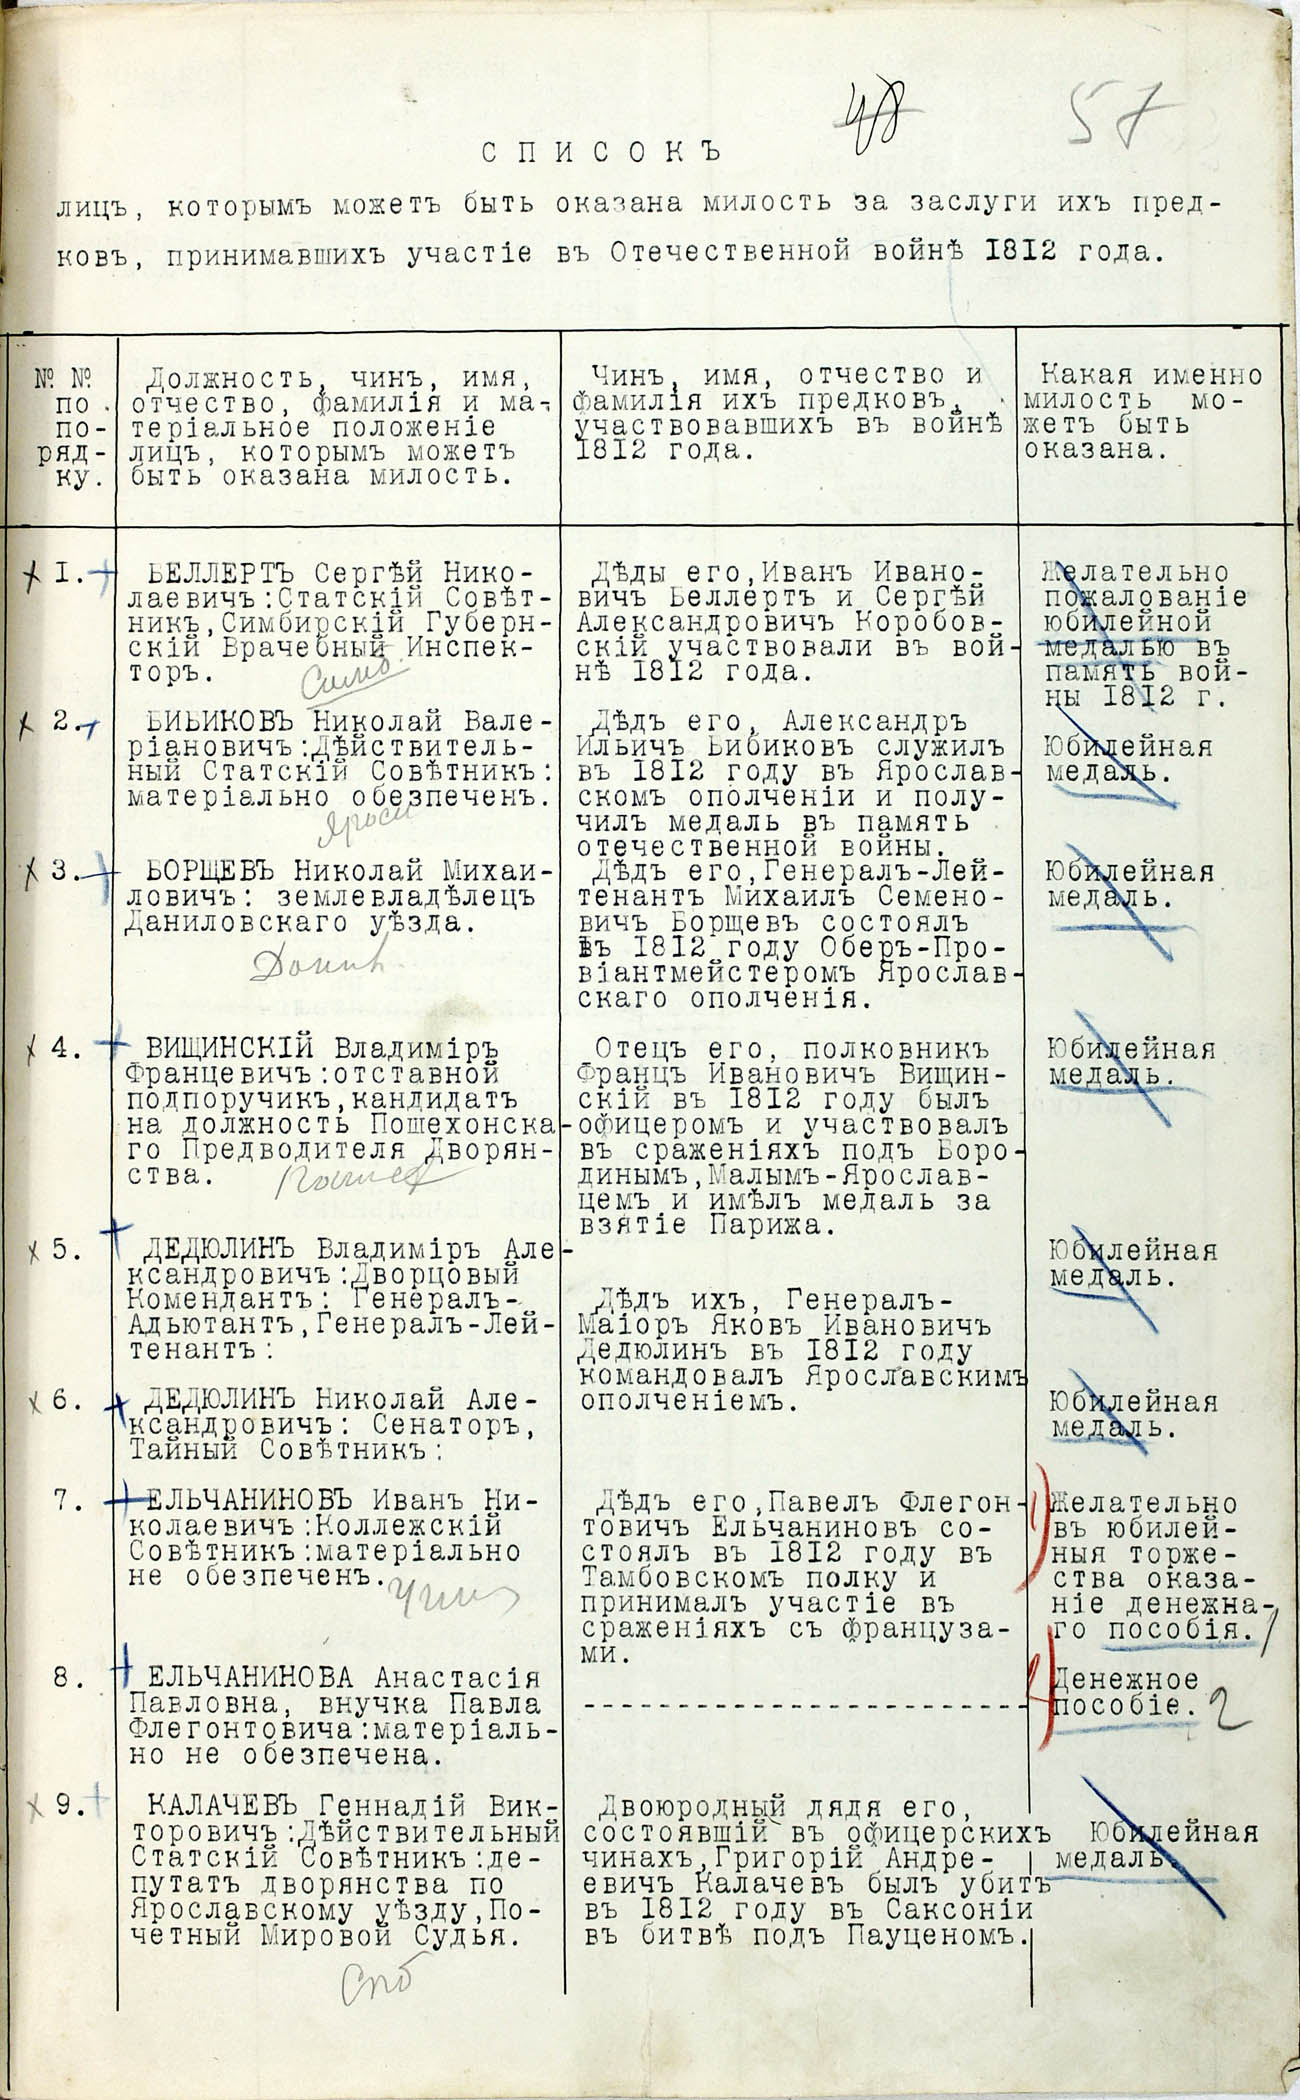 48 57
СПИСОКЪ
лицъ, которымъ можетъ быть оказана милость за заслуги ихъ пред-
ковъ, принимавшихъ участіе въ Отечественной войнѣ 1812 года.
№ №
по
по-
ряд-
ку.
Должность, чинъ, имя,
отчество, фамилія и ма-
теріальное положеніе
лицъ, которымъ можетъ
быть оказана милость.
Чинъ, имя, отчество и
фамилія ихъ предковъ,
участвовавшихъ въ войнѣ
1812 года.
Какая именно
милость мо-
жетъ быть
оказана.
1.
БЕЛЛЕРТЪ Сергѣй Нико-
лаевичъ:Статскій Совѣт-
никъ,Симбирскій Губерн-
скій Врачебный Инспек-
торъ.
Симб.
Дѣды его,Иванъ Ивано-
вичъ Беллертъ и Сергѣй
Александровичъ Коробов-
скій участвовали въ вой-
нѣ 1812 года.
Желательно
пожалованіе
юбилейной
медалью въ
память вой-
ны 1812 г.
2.
БИБИКОВЪ Николай Вале-
ріановичъ:Дѣйствитель-
ный Статскій Совѣтникъ:
матеріально обезпеченъ.
Яросл
Дѣдъ его, Александръ
Ильичъ Бибиковъ служилъ
въ 1812 году въ Ярослав-
скомъ ополченіи и полу-
чилъ медаль въ память
отечественной войны.
Юбилейная
медаль.
3.
БОРЩЕВЪ Николай Михаи-
ловичъ: землевладѣлецъ
Даниловскаго уѣзда.
Дѣдъ его,Генералъ-Лей-
тенантъ Михаилъ Семено-
вичъ Борщевъ состоялъ
въ 1812 году Оберъ-Про-
віантмейстеромъ Ярослав-
скаго ополченія.
Юбилейная
медаль.
4.
ВИЩИНСКІЙ Владиміръ
Францевичъ:отставной
подпоручикъ,кандидатъ
на должность Пошехонска-
го Предводителя Дворян-
ства.
Пошех
Отецъ его, полковникъ
Францъ Ивановичъ Вищин-
скій въ 1812 году былъ
офицеромъ и участвовалъ
въ сраженіяхъ подъ Боро-
динымъ,Малымъ-Ярослав-
цемъ и имѣлъ медаль за
взятіе Парижа.
Юбилейная
медаль.
5.
ДЕДЮЛИНЪ Владиміръ Але-
ксандровичъ:Дворцовый
Комендантъ: Генералъ-
Адьютантъ,Генералъ-Лей-
тенантъ:
Дѣдъ ихъ, Генералъ-
Маіоръ Яковъ Ивановичъ
Дедюлинъ въ 1812 году
командовалъ Ярославскимъ
ополченіемъ.
Юбилейная
медаль.
6.
ДЕДЮЛИНЪ Николай Але-
ксандровичъ: Сенаторъ,
Тайный Совѣтникъ:
Юбилейная
медаль.
7.
ЕЛЬЧАНИНОВЪ Иванъ Ни-
колаевичъ:Коллежскій
Совѣтникъ:матеріально
не обезпеченъ.
Дѣдъ его,Павелъ Флегон-
товичъ Ельчаниновъ со-
стоялъ въ 1812 году въ
Тамбовскомъ полку и
принималъ участіе въ
сраженіяхъ съ француза-
ми.
1)
Желательно
въ юбилей-
ныя торже-
ства оказа-
ніе денежна-
го пособія. 1
8.
ЕЛЬЧАНИНОВА Анастасія
Павловна, внучка Павла
Флегонтовича:матеріаль-
но не обезпечена.
------------------------
2)
Денежное
пособіе. 2
9.
КАЛАЧЕВЪ Геннадій Вик-
торовичъ:Дѣйствительный
Статскій Совѣтникъ:де-
путатъ дворянства по
Ярославскому уѣзду,По-
четный Мировой Судья.
Спб
Двоюродный дядя его,
состоявшій въ офицерскихъ
чинахъ,Григорій Андре-
евичъ Калачевъ былъ убитъ
въ 1812 году въ Саксоніи
въ битвѣ подъ Пауценомъ.
Юбилейная
медаль.